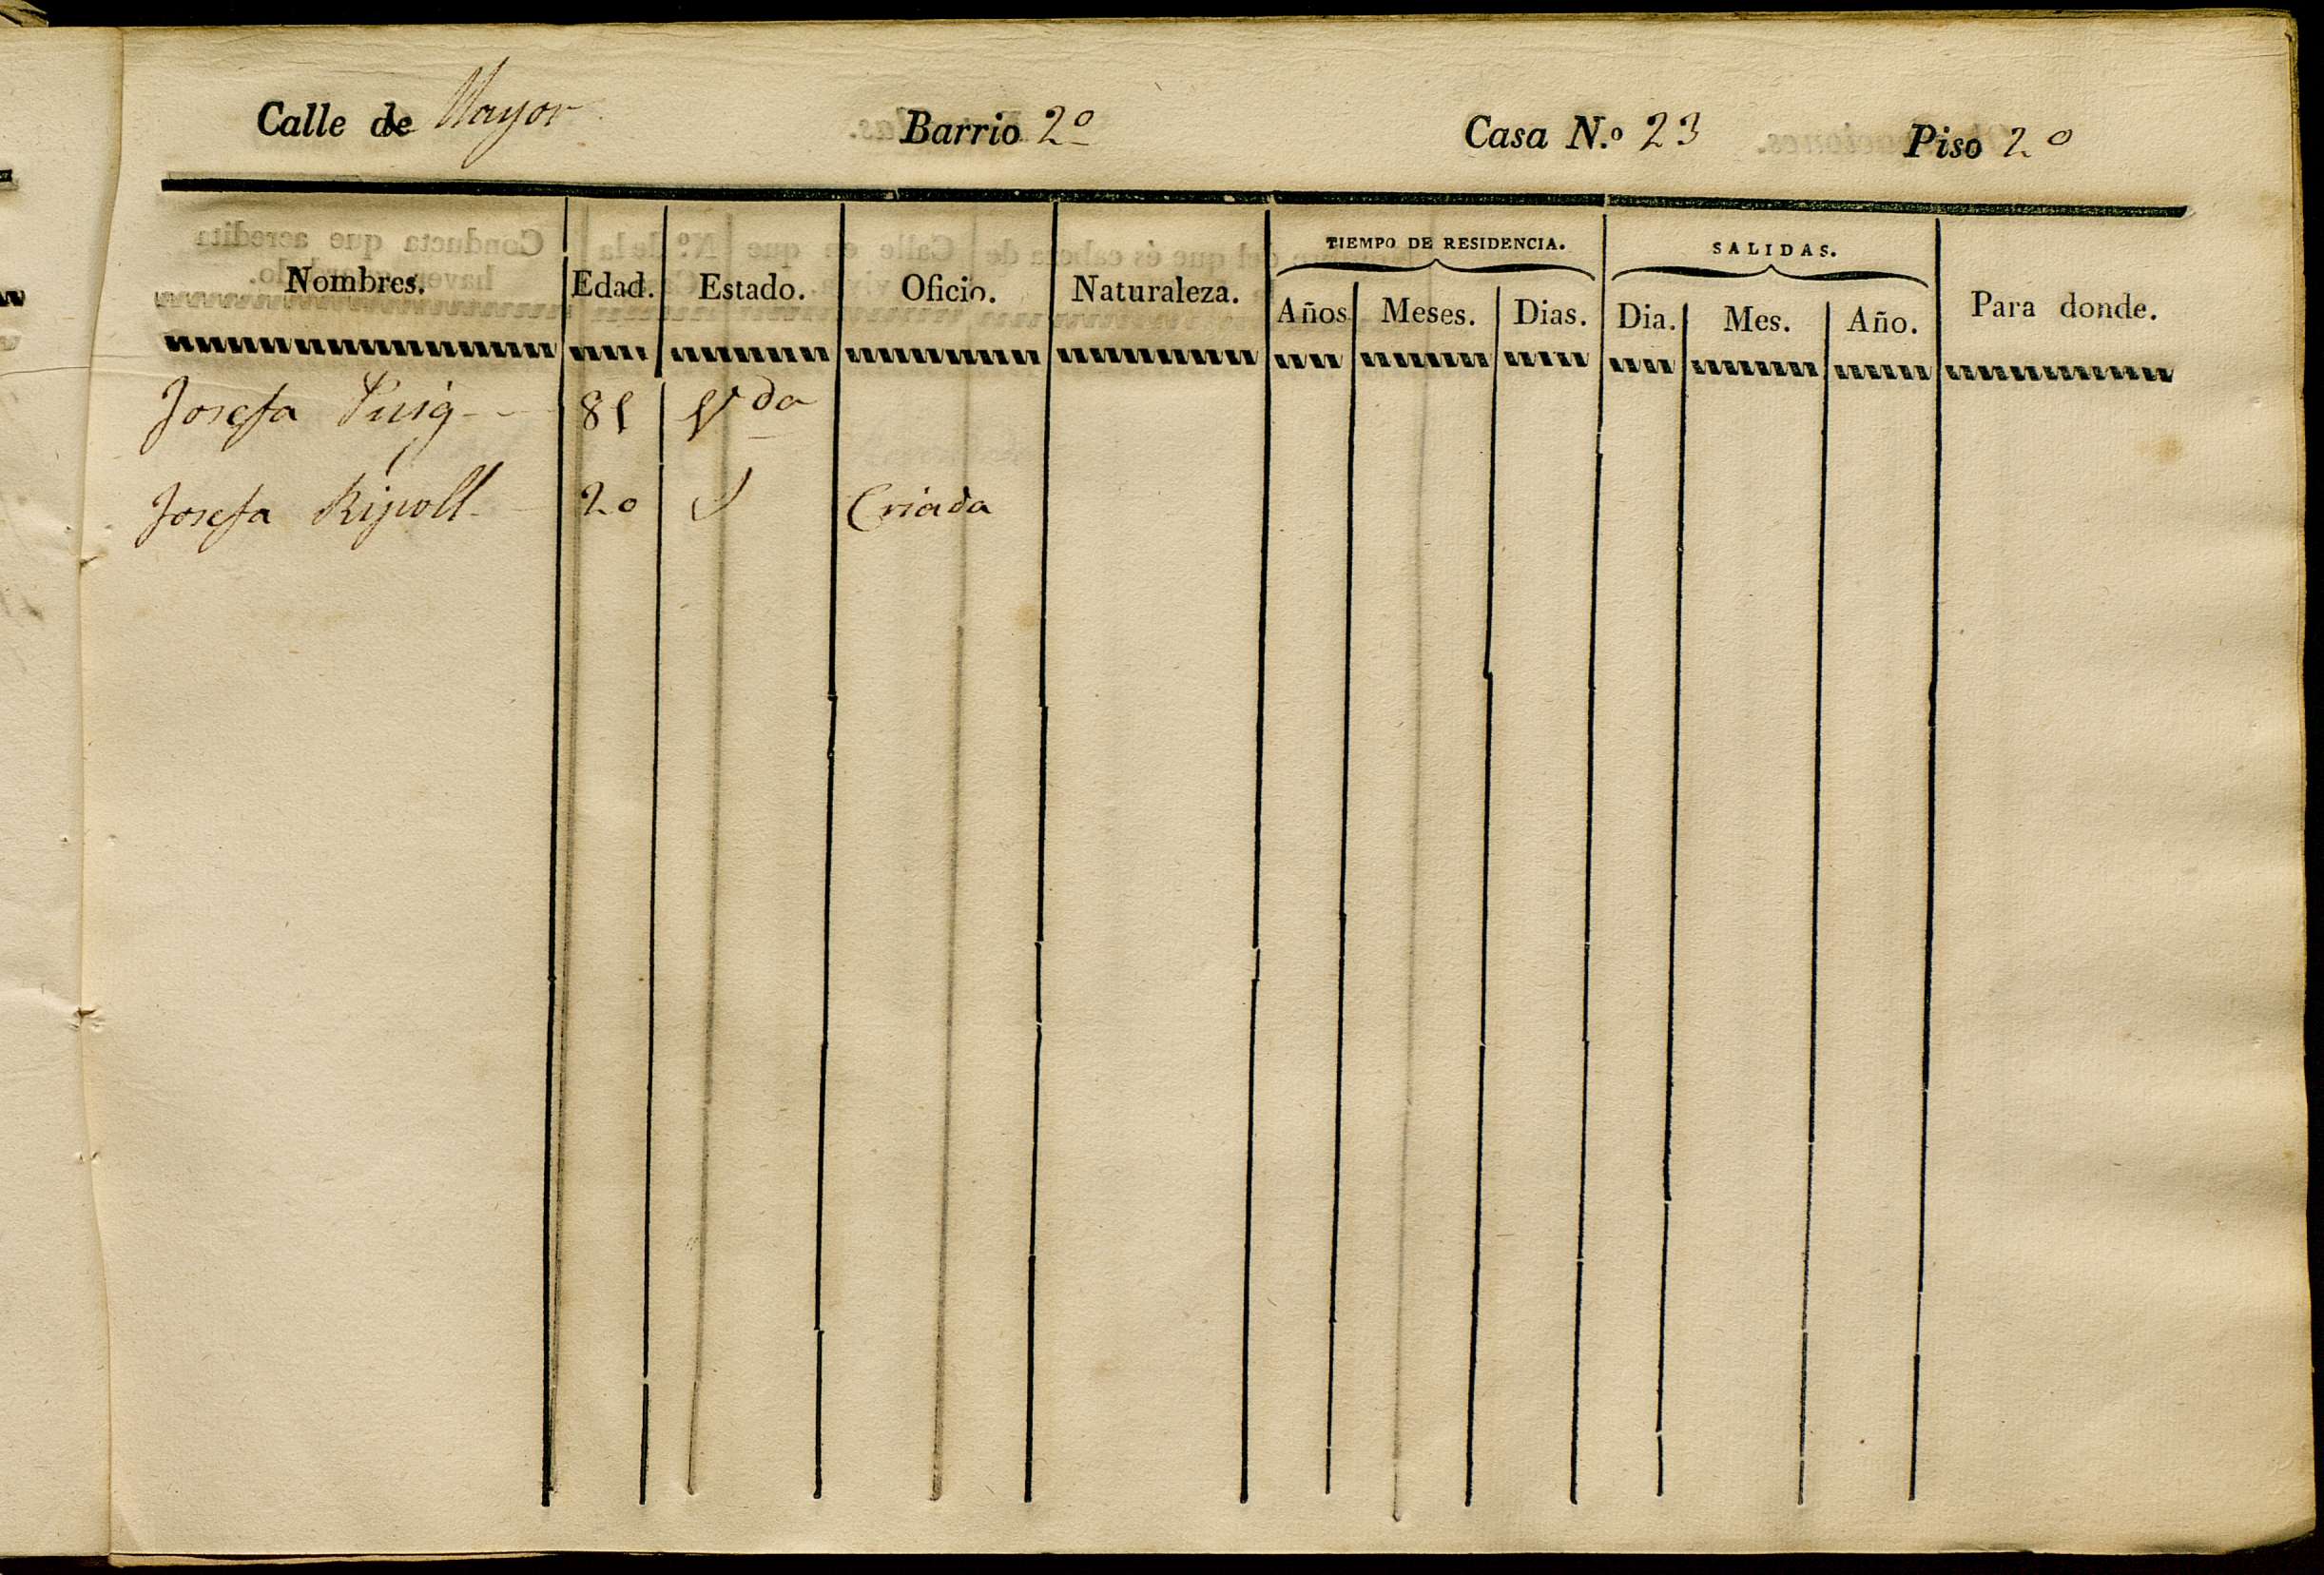 Calle de Mayor Barrio 2º Casa N.º 23 Piso 2º
TIEMPO DE RESIDENCIA. SALIDAS.
Nombres. Edad. Estado. Oficio. Naturaleza. Años Meses. Dias. Dia. Mes. Año. Para donde.
Josefa Puig - - V.da
Josefa Ripoll - 20 Criada